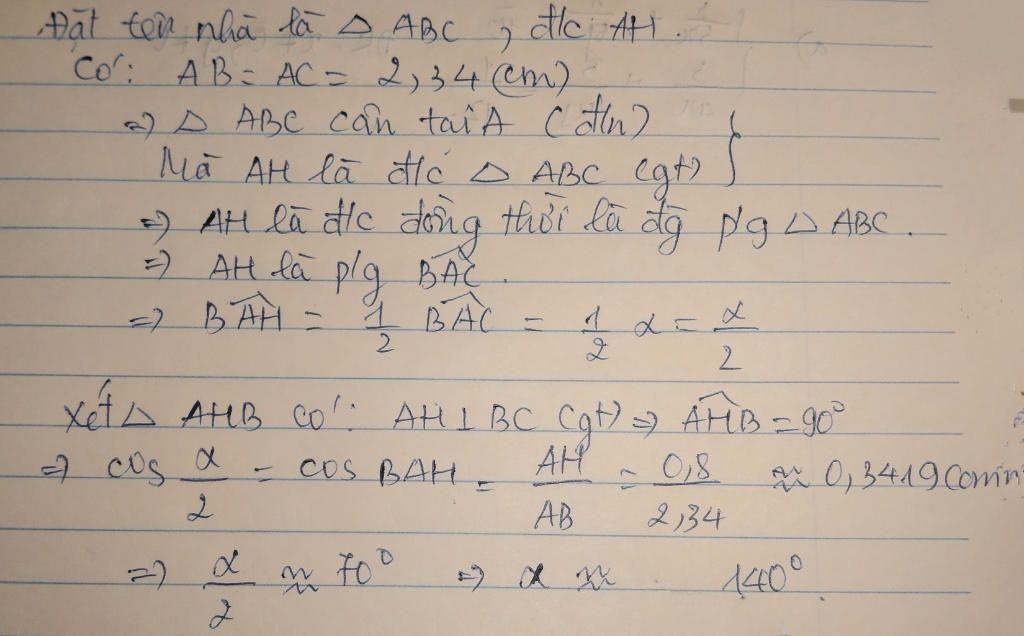 Đặt tên nhà là △ ABC , đ/c AH.
Có: AB = AC = 2,34 (cm)
=> △ ABC cân tại A (đ/n) }
Mà AH là đ/c △ ABC (gt)
=> AH là đ/c đồng thời là đg p/g △ ABC.
=> AH là p/g BAC.
=> BAH = 1/2 BAC = 1/2 α = α/2
Xét △ AHB có: AH ⊥ BC (gt) => AHB = 90°
=> cos α/2 = cos BAH = AH/AB = 0,8/2,34 ≈ 0,3419 (cm
=> α/2 ≈ 70° => α ≈ 140°.